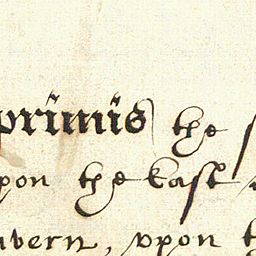 primis the
pon the East
avern, vpon t